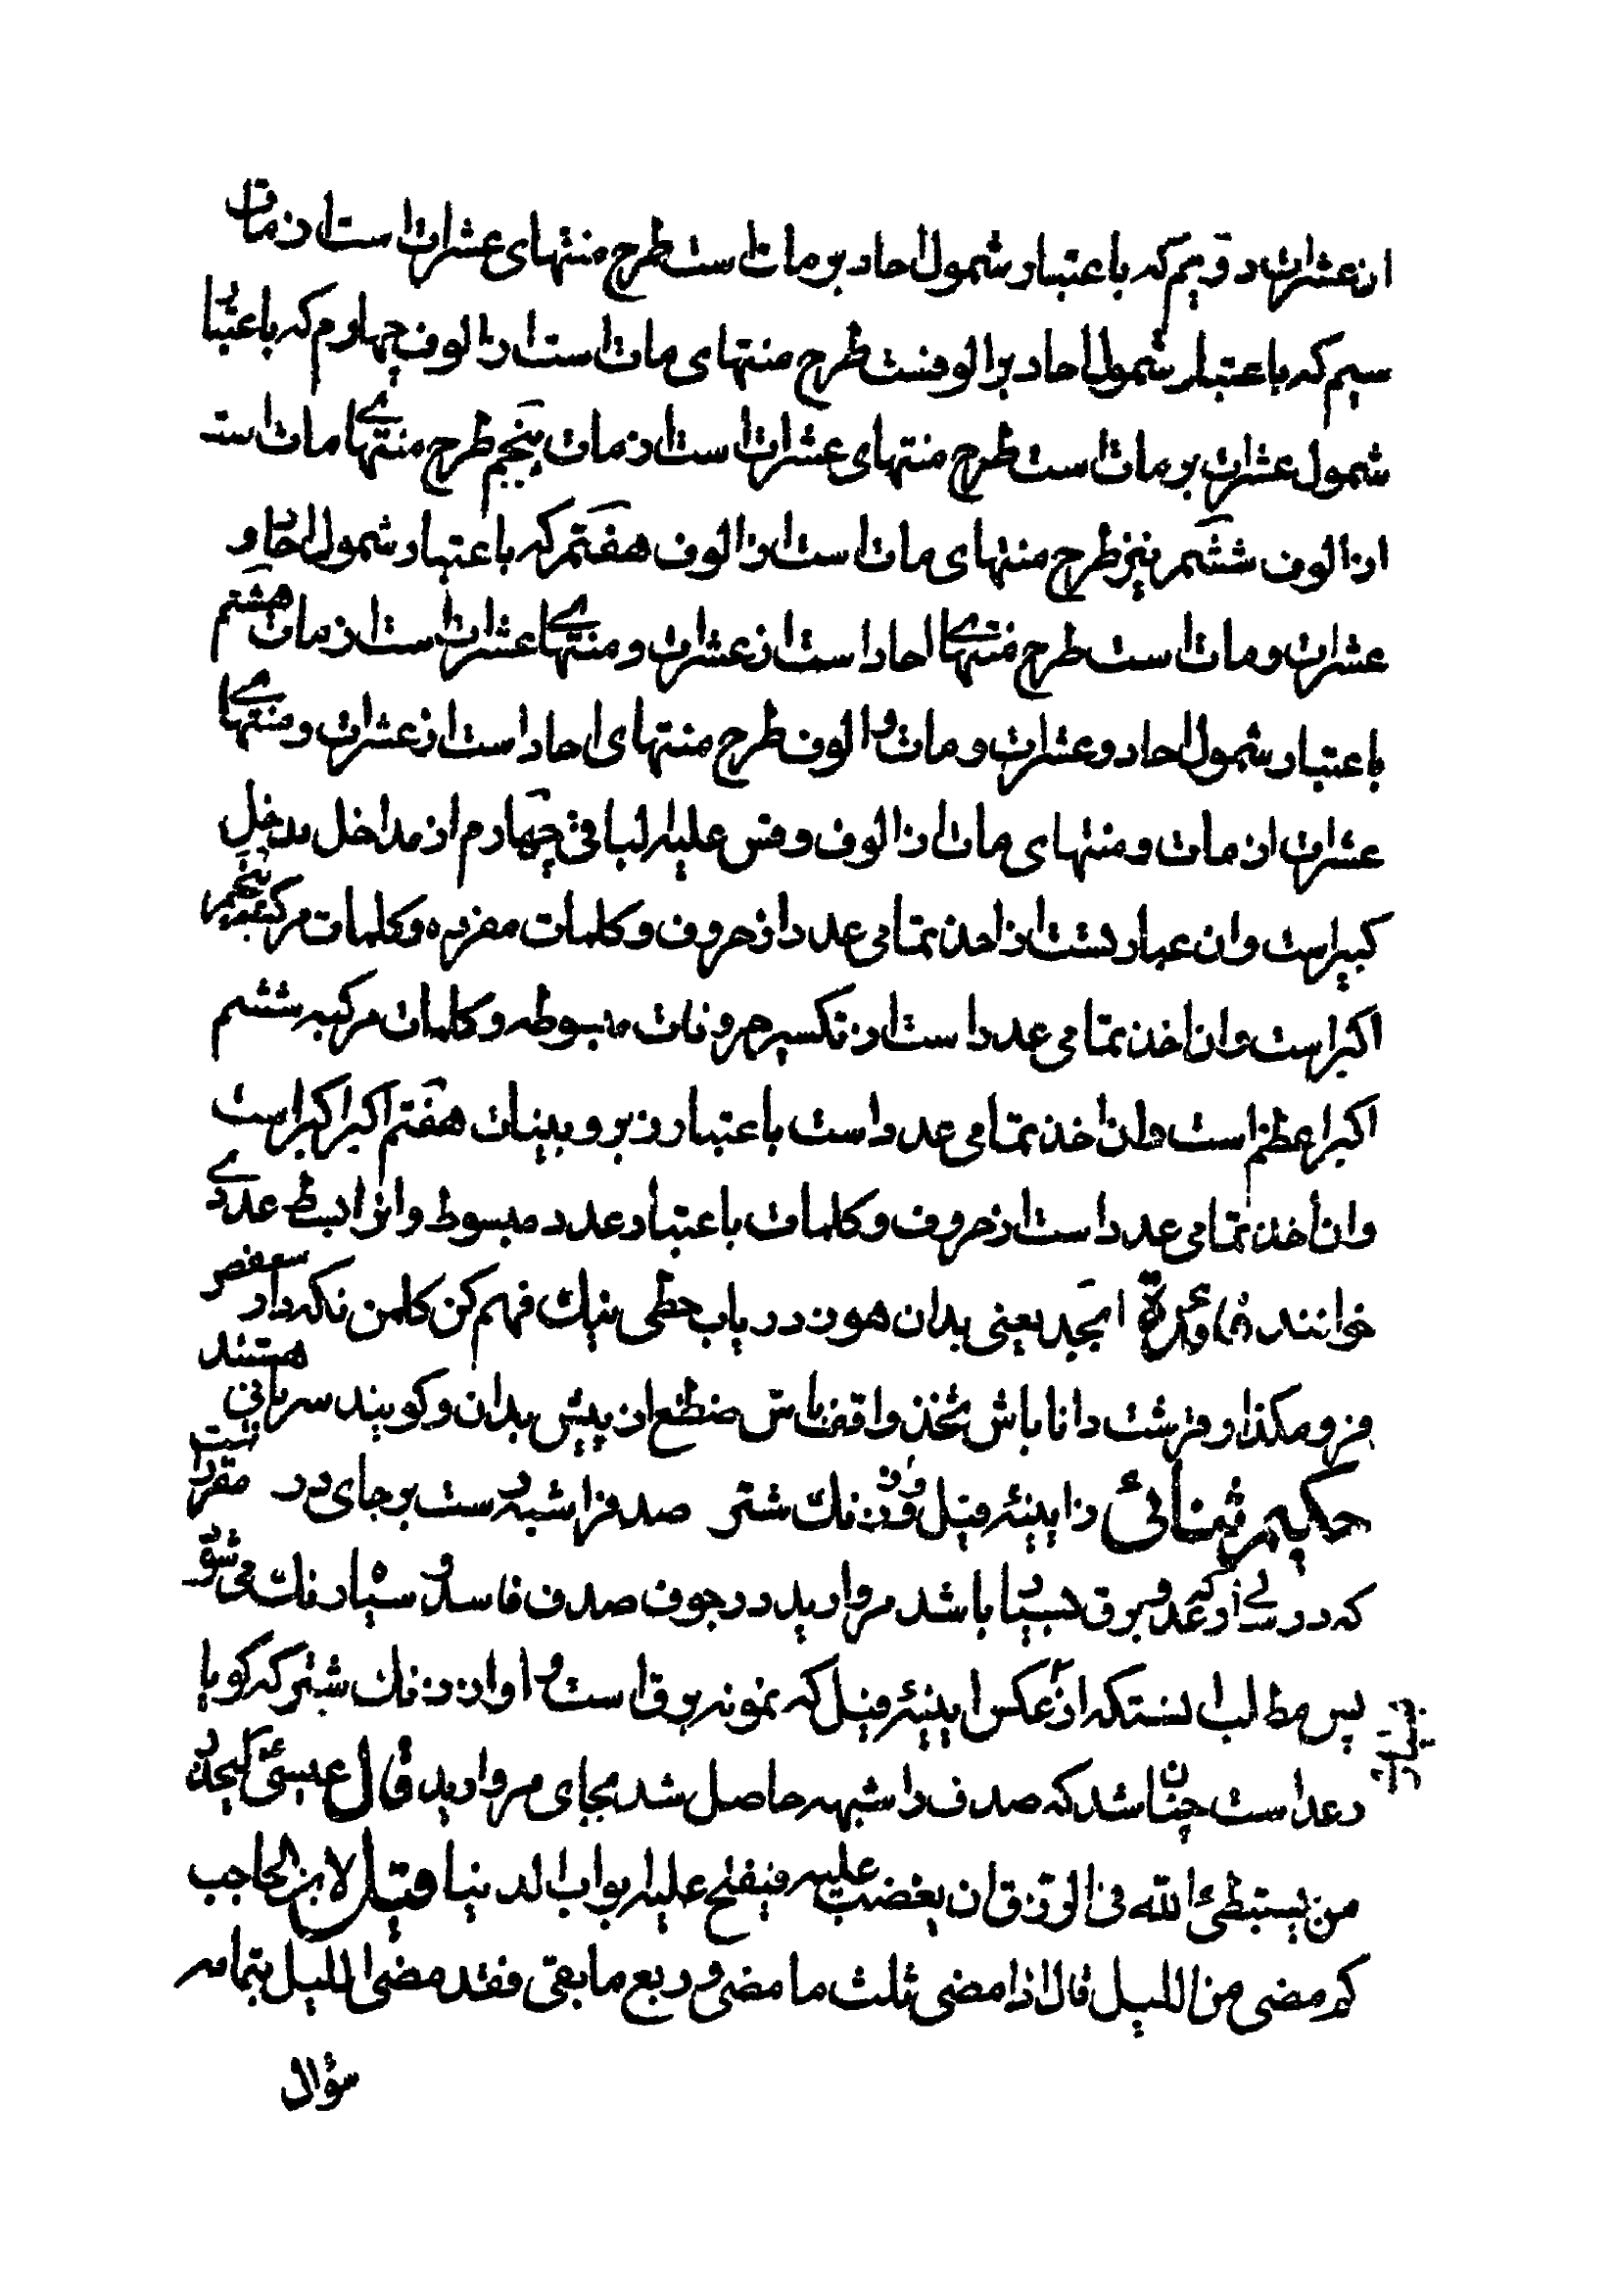 از عشرات دویم که باعتبار شمول احاد بر مات است طرح منتهای عشرات است از مات
سیم که باعتبار شمول احاد بر الوفست طرح منتهای مات است از الوف چهارم که باعتبار
شمول عشرات بر مات است طرح منتهای عشرات است از مات پنجم طرح منتهای مات است
از الوف ششم نیز طرح منتهای مات است از الوف هفتم که باعتبار شمول احاد و
عشرات و مات است طرح منتهای احاد است از عشرات و منتهای عشرات است از مات هشتم
باعتبار شمول احاد و عشرات و مات و الوف طرح منتهای احاد است از عشرات و منتهای
عشرات از مات و منتهای مات از الوف وقس علیه البافی چهارم از مداخل مدخل
کبیر است وان عبارتست از اخذ تمامی عدد از حروف و کلمات مفرده و کلمات مرکبه پنجم
اکبر است وان اخذ تمامی عدد است از تکسیر حروفات مبسوطه و کلمات مرکبه ششم
اکبر اعظم است وان اخذ تمامی عدد است باعتبار زبر و بینات هفتم اکبر اکبر است
وان اخذ تمامی عدد است از حروف و کلمات باعتبار عدد مبسوط وانرا بسط عددی
خوانند فائدة ابجد یعنی بدان هوز دریاب حطی نیك فهم کن کلمن نکهدار سعفص
فرومکذار قرشت دانا باش ثخذ واقف باش ضظغ از پیش بدان و کویند سریانی هستند
حکیم ثنائی زاینئه فیل وزنك شتر صدف را شبه رست بر جای در
که در سالی که رعد و برق بسیار باشد مروارید در جوف صدف فاسد و سیاه رنك می شود
پس مطلب انستکه از عکس اینئه فیل که نمونه برق است و اواز زنك شتر که کویا
رعد است چنان شد که صدف را شبهه حاصل شد بجای مروارید قال عیسی لیحذر
من یستبطئ الله فی الرزق ان یغضب علیه فیفتح علیه ابواب الدنیا قیل لابن الحاجب
کم مضی من اللیل قال اذا مضی ثلث ما مضی و ربع ما بقی فقد مضی اللیل بتمامه
سؤال